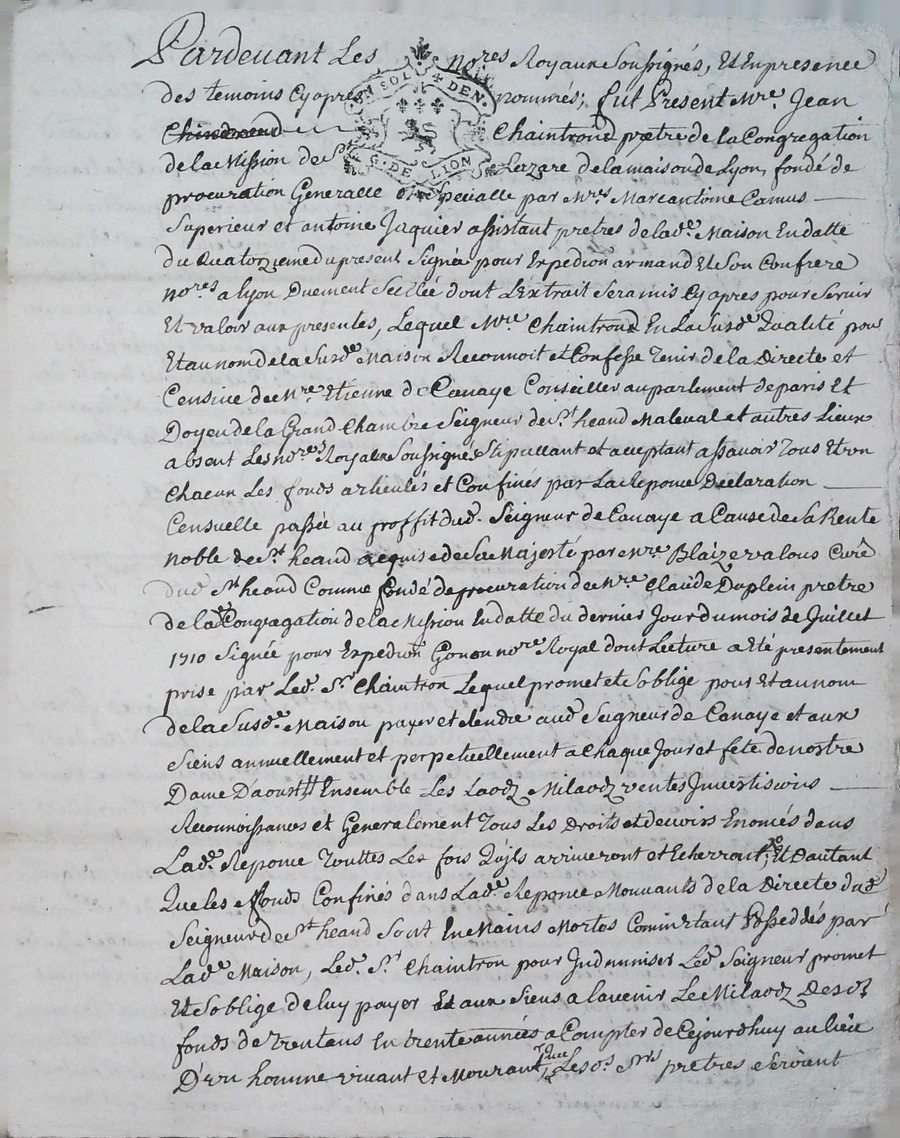 Pardevant Les no.res Royaux Soussignés, Et En presence
UN SOL DEN.
G. DE LION
des temoins Cyapres nommés; fut Present Mre. Jean
Chaintrond prêtre de la Congregation
de la Mission de St. Lazare de la maison de Lyon, fondé de
procuration Generalle et Specialle par Mrs. Marcantoine Camus
Superieur et antoine Jaquier assistant pretres de lad.e Maison En datte
du Quatorzieme du present Signée pour Expedion armand Et Son Confrere
no.res a lyon Duement Scellée dont L'Extrait Sera mis Cy apres pour Servir
Et valoir aux presentes, Lequel Mre Chaintrond En La Susd.e Qualité pour
Et au nom de la Susd.e Maison Reconnoit et Confesse Tenir de la Directe et
Censive de Mre. Etienne de Canaye Conseiller au parlement de paris Et
Doyen de la Grand Chambre Seigneur de St. heand Maleval et autres Lieux
absent Les no.res Royaux Soussignés Stipullant et acceptant assavoir Tous Et un
Chacun Les fonds articulés et Confinés par La Reponce Declaration
Censuelle passée au proffit dud. Seigneur de Canaye a Cause de Sa Rente
noble de St. heand acquise de Sa Majesté par Mre. Blaize valous Curé
dud. St. heand Comme fondé de procuration de Mre Claude Duplein pretre
de lad.e Congregation de la Mission En datte du dernier Jour du mois de Juillet
1710 Signée pour Expedion Gonon no.re Royal dont Lecture a Eté presentement
prise par Led. Sr. Chaintron Lequel promet et S'oblige pour Et au nom
de la Susd.e Maison payer et Rendre aud. Seigneur de Canaye et aux
Siens annuellement et perpetuellement a Chaque Jour et fête de nostre
Dame D'aoust Ensemble Les Laodz Milaodz ventes Jnvertisons
Reconnoissances et Generalement Tous Les Droits et devoirs Enoncés dans
Lad.e Reponce Touttes Les fois Quils arriveront et Echerront; Et Dautant
Que les fonds Confinés dans Lad.e Reponce Mouvants de la Directe dud.
Seigneur de St. heand Sont En Mains Mortes Comm'Etant Possedés par
Lad.e Maison, Led. Sr. Chaintron pour Jndemniser Led. Seigneur promet
Et S'oblige de luy payer Et aux Siens a l'avenir Le Milaodz Desd.
fonds de trentans En trente années a Compter de Cejourdhuy au lieu
D'un homme vivant et Mourant, Lesd. Srs pretres Seroient